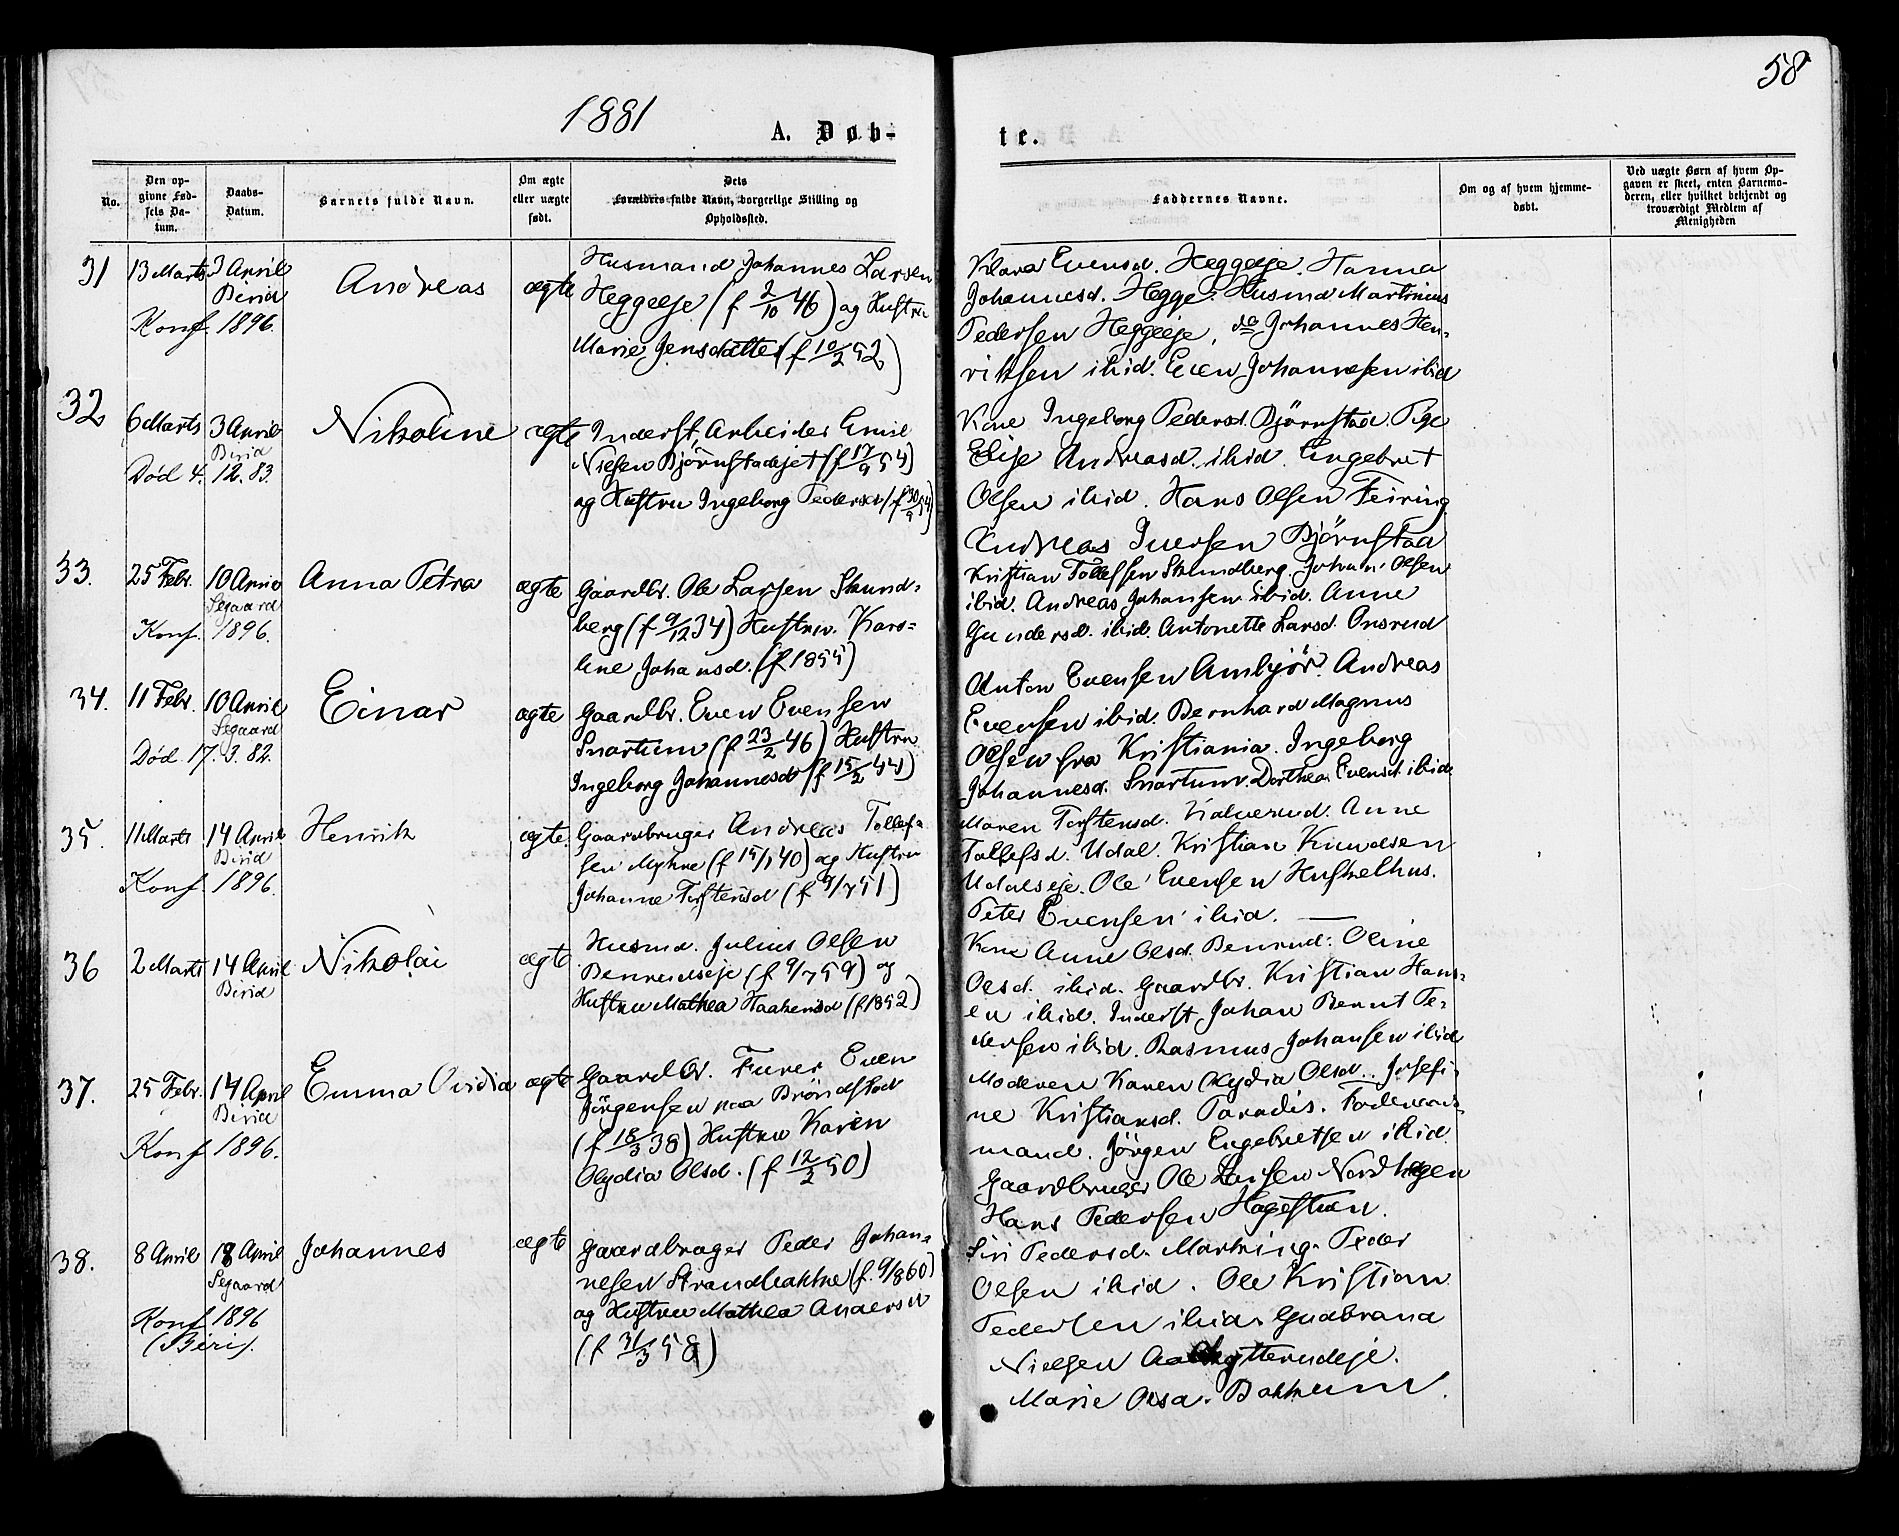 58
1881
A. Døb-
te.
No.
Den op-
givne Fød-
sels Da-
tum.
Daabs-
Datum.
Barnets fulde Navn.
Om ægte
eller uægte
født.
Dets
Forældres fulde Navn, borgerlige Stilling og
Opholdssted.
Faddernes Navne.
Om og af hvem hjemme-
døbt.
Ved uægte Børn af hvem Op-
gaven er skeet, enten Barnemo-
deren, eller hvilket bekjendt og
troværdigt Medlem af
Menigheden
31 13 Marts 3 April
Birid
Konf. 1896.
Andreas
ægte
Husmand Johannes Larsen
Heggeeje (f 2/10 46) og Hustru
Marie Jensdatter (f 10/2 52)
Klara Evensd. Heggeeje. Hanna
Johannesd. Hegge. Husmd Martinius
Pedersen Heggeeje, do Johannes Hen-
riksen ibid. Even Johannesen ibid
32 6 Marts 3 April
Birid
Død 4. 12. 83.
Nikoline
ægte
Inderst, Arbeider Emil
Nielsen Bjørnstadejet (f 17/9 54)
og Hustru Ingeborg Pedersd (f 30/9 54)
Kone Ingeborg Pedersd. Bjørnstad. Pige
Elise Andreasd. ibid. Engebret
Olsen ibid. Hans Olsen Feiring
Andreas Iversen Bjørnstad
33. 25 Febr. 10 April
Segaard
Konf. 1896.
Anna Petra
ægte
Gaardbr. Ole Larsen Skund-
berg (f 9/12 34) Hustru. Karo-
line Johansd. (f 1855)
Kristian Tollefsen Skundberg. Johan Olsen
ibid. Andreas Johansen ibid. Anne
Gundersd. ibid. Antonette Larsd. Onsrud
34. 11 Febr. 10 April
Segaard
Død 17. 3. 82.
Einar
ægte
Gaardbr. Even Evensen
Snartum (f 23/2 46) Hustru
Ingeborg Johannesd (f 15/2 44)
Anton Evensen Ambjør. Andreas
Evensen ibid. Bernhard Magnus
Olsen fra Kristiania. Ingeborg
Johannesd. Snartum. Dorthea Evensd. ibid.
35. 11 Marts 14 April
Birid
Konf. 1896.
Henrik
ægte.
Gaardbruger Andreas Tollef-
sen Myhre (f 15/1 40) og Hustru
Johanne Torstensd (f 9/7 51)
Maren Torstensd. Anne
Tollefsd. Udal. Kristian Knudsen
Udalseje. Ole Evensen Hustvelhus.
Peter Evensen ibid.
36 2 Marts 14 April
Birid
Nikolai
ægte
Husmd. Julius Olsen
Benrudseje (f 9/7 59) og
Hustru Mathea Haakensd (f 1852)
Kone Anne Olsd. Benrud. Oline
Olsd. ibid. Gaardbr. Kristian Hans-
en ibid. Inderst Johan Bernt Pe-
dersen ibid. Rasmus Johansen ibid
37. 25 Febr. 14 April
Birid
Konf 1896.
Emma Ovidia
ægte
Gaardbr. Furer Even
Jörgensen paa Bröndstad
(f 18/3 38) Hustru Karen
Olydia Olsd. (f 12/2 50)
Moderen Karen Olydia Olsd. Josefi-
ne Kristiansd. Paradis. Foderaads-
mand. Jörgen Engebretsen ibid.
Gaardbruger Ole Larsen Nordhagen
Hans Pedersen Hagestuen.
38. 8 April 18 April
Segaard
Konf 1896
(Biri).
Johannes
ægte
Gaardbruger Peder Johan-
nesen Strandbakke (f. 9/8 60)
og Hustru Mathea Andersn
(f 31/3 58)
Siri Pedersd. Martring. Peder
Olsen ibid. Ole Kristian
Pedersen ibid. Gudbrand
Nielsen
Marie Olsd. Bakkum.